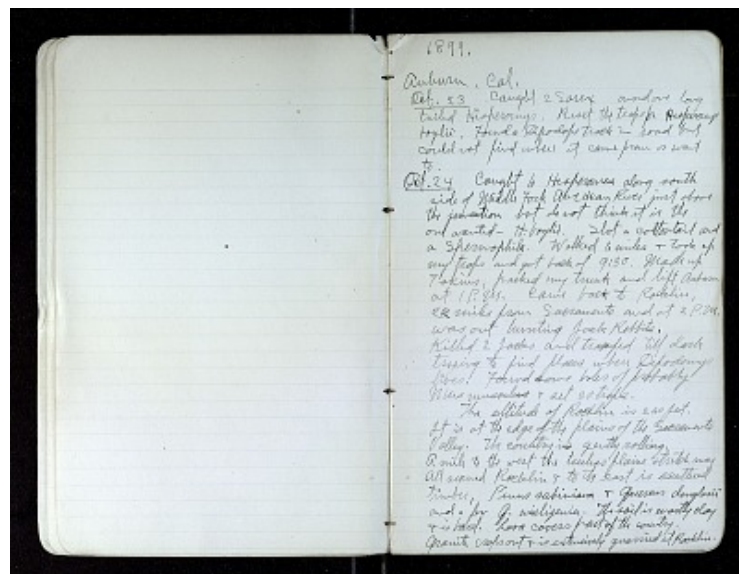 1899.
Auburn, Cal.
Oct. 23 Caught 2 Sorex and one long
tailed Hesperomys. Reset the traps for Hesperomys
boylii. Found a Dipodops track in road but
could not find where it came from or went
to.
Oct. 24 Caught 6 Hesperomys along south
side of Middle Fork American River just above
the junction but do not think it is the
one wanted - H. boylii. Shot a cottontail and
a Spermophile. Walked 6 miles + took up
my traps and got back at 9:30. Made up
7 skins, packed my trunk and left Auburn
at 1 P.M. Came back to Rocklin,
22 miles from Sacramento and at 2 P.M.
was out hunting Jack Rabbits.
Killed 2 Jacks and tramped till dark
trying to find places where Dipodomys
lives. Found some holes of probably
Mus musculus + set traps.
The altitude of Rocklin is 240 feet.
It is at the edge of the plains of the Sacramento
Valley. The country is gently rolling.
A mile to the west the treeless plains stretch away
All around Rocklin + to the east is scattered
timber, Pinus sabiniana + Quercus douglasii
and a few Q. wislizenia. The soil is mostly clay
+ is hard. covers most of the country.
Granite crops out + is extensively quarried at Rocklin.